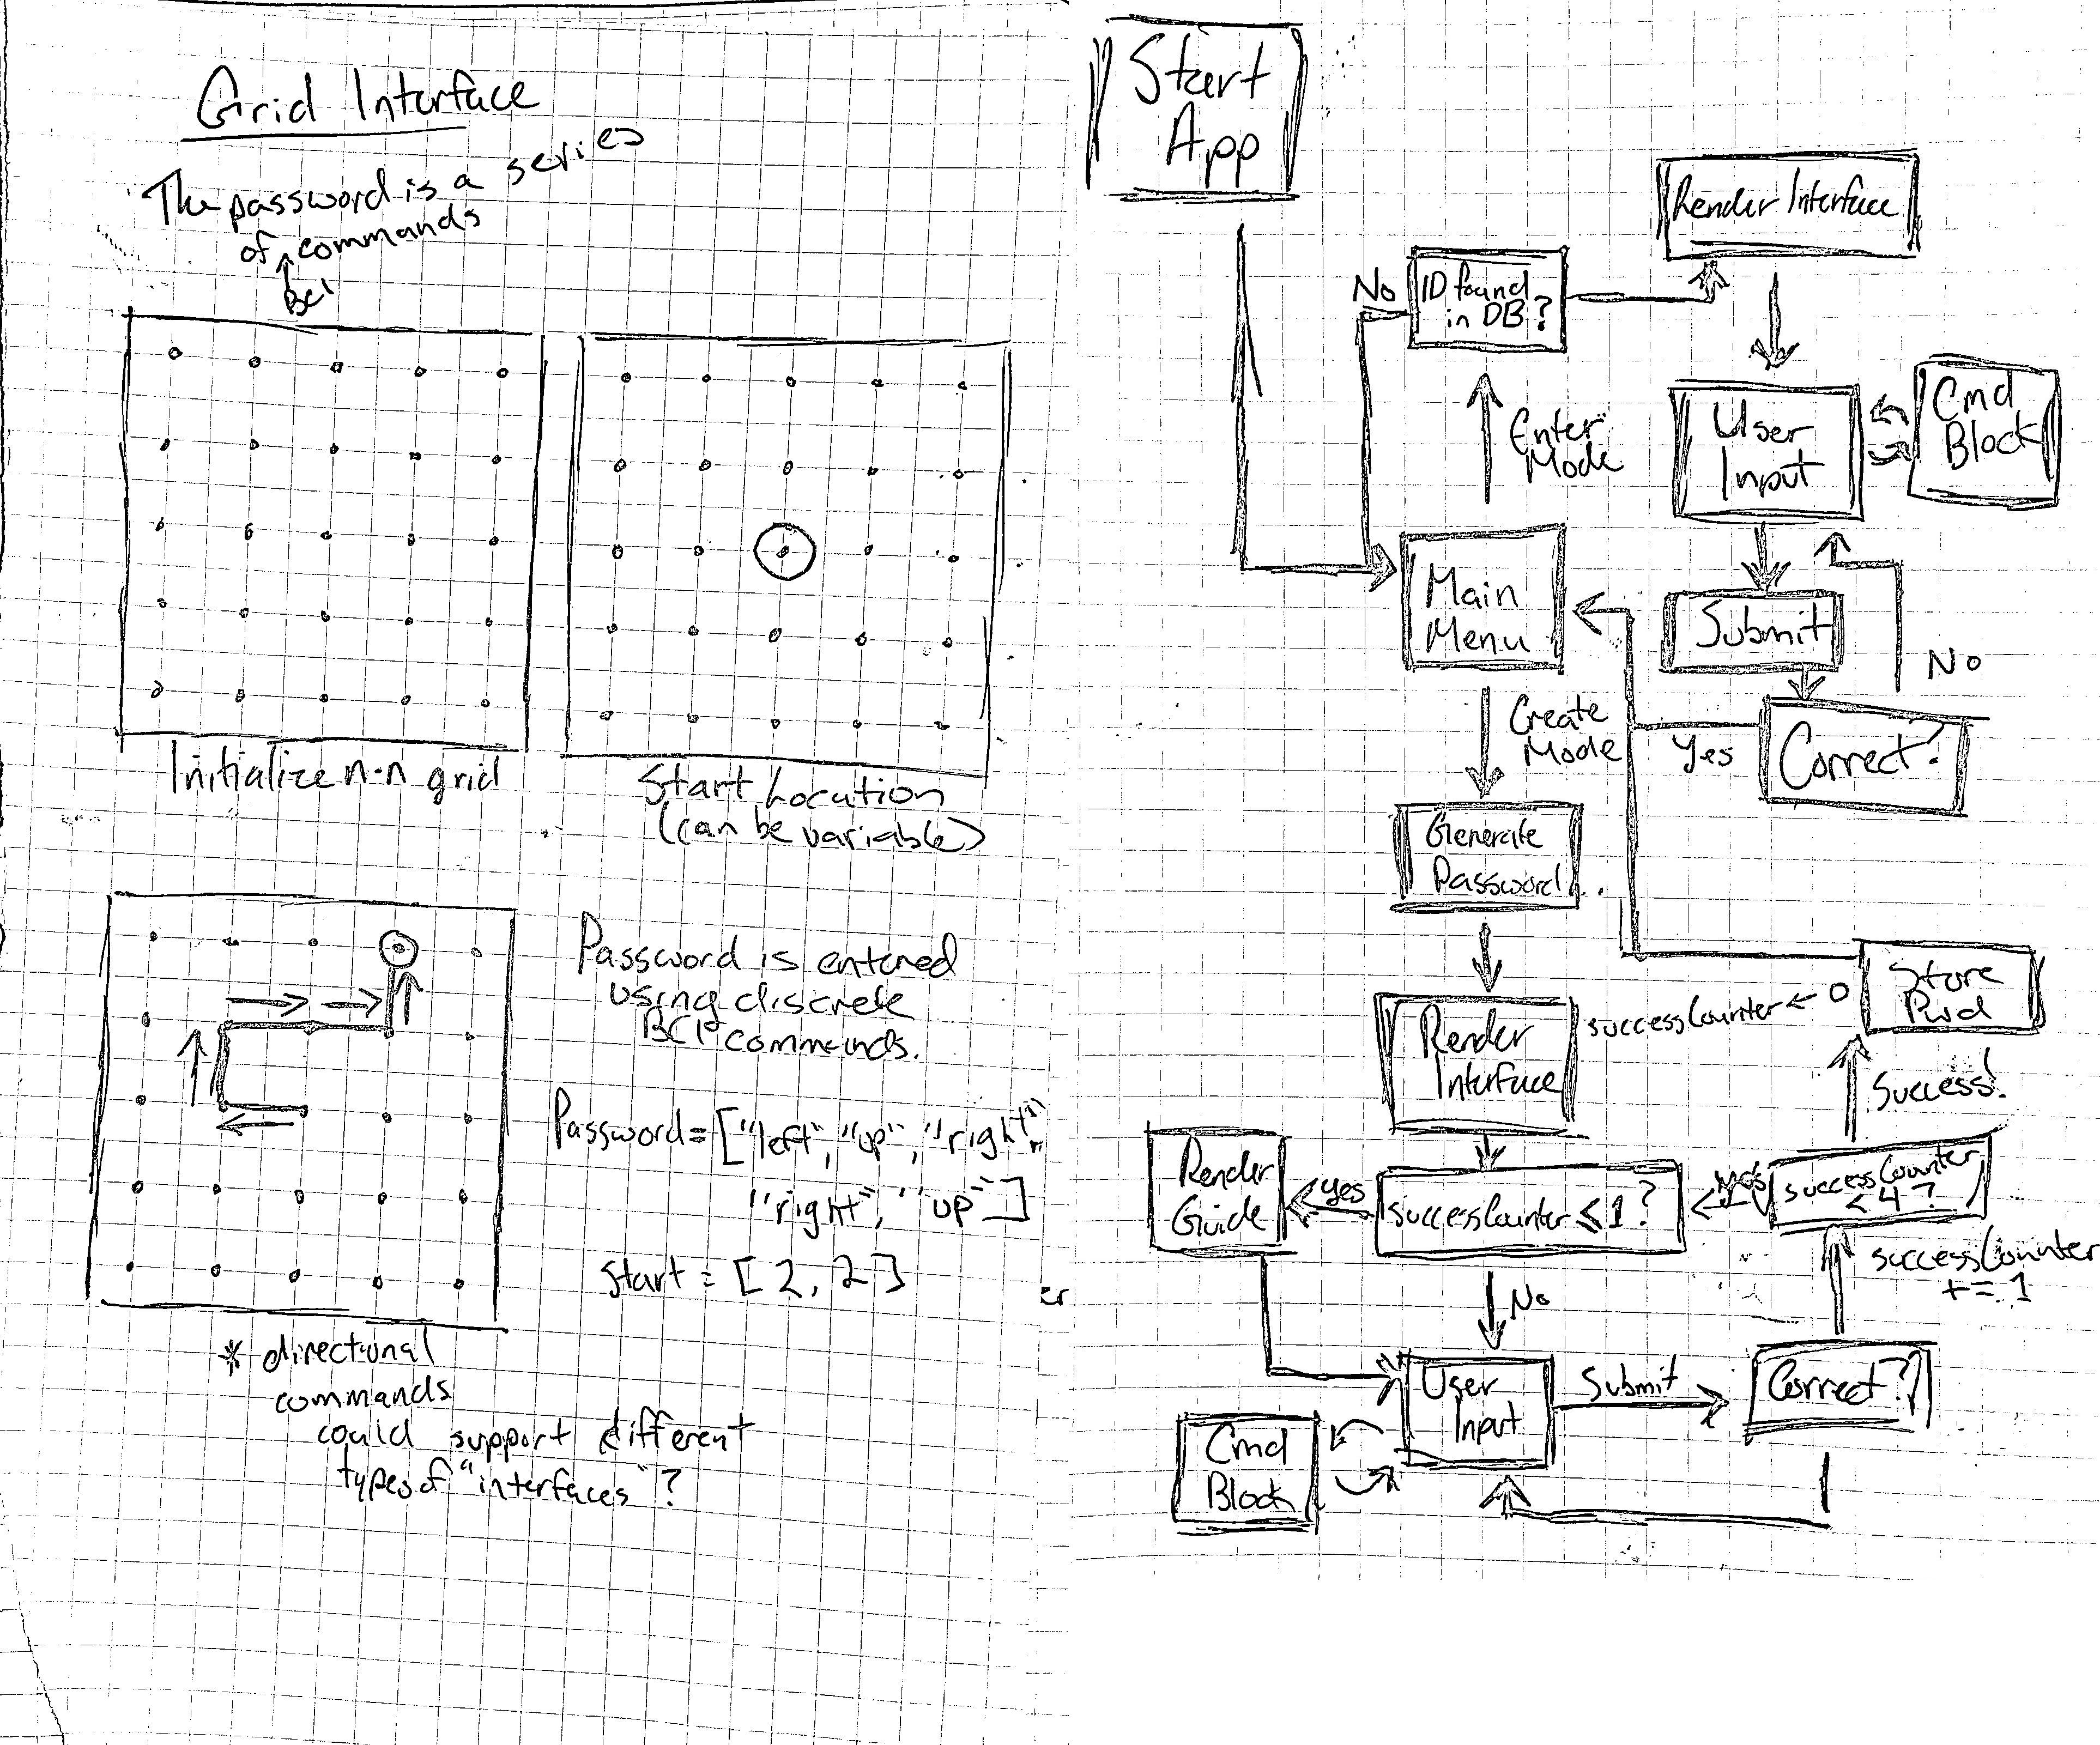 Grid Interface
The password is a series
of commands
BCI
Initialize n·n grid
Start Location
(can be variable)
Password is entered
using discrete
BCI commands.
Password = ["left", "up", "right",
"right", "up"]
Start = [2, 2]
* directional
commands
could support different
types of "interfaces"?
er
Start
App
Render Interface
No
ID found
in DB?
Enter
Mode
User
Input
Cmd
Block
Main
Menu
Submit
No
Create
Mode
Yes
Correct?
Generate
Password
Render
Interface
successCounter ← 0
Store
Pwd
Success!
Render
Guide
Yes
successCounter ≤ 1?
Yes
successCounter
< 4?
successCounter
+= 1
No
User
Input
Submit
Correct?
Cmd
Block